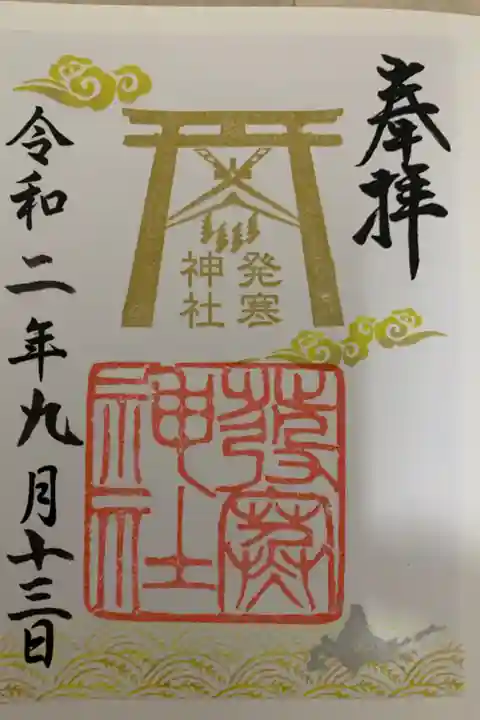 奉拝
発寒
神社
發寒
神社
令和二年九月十三日